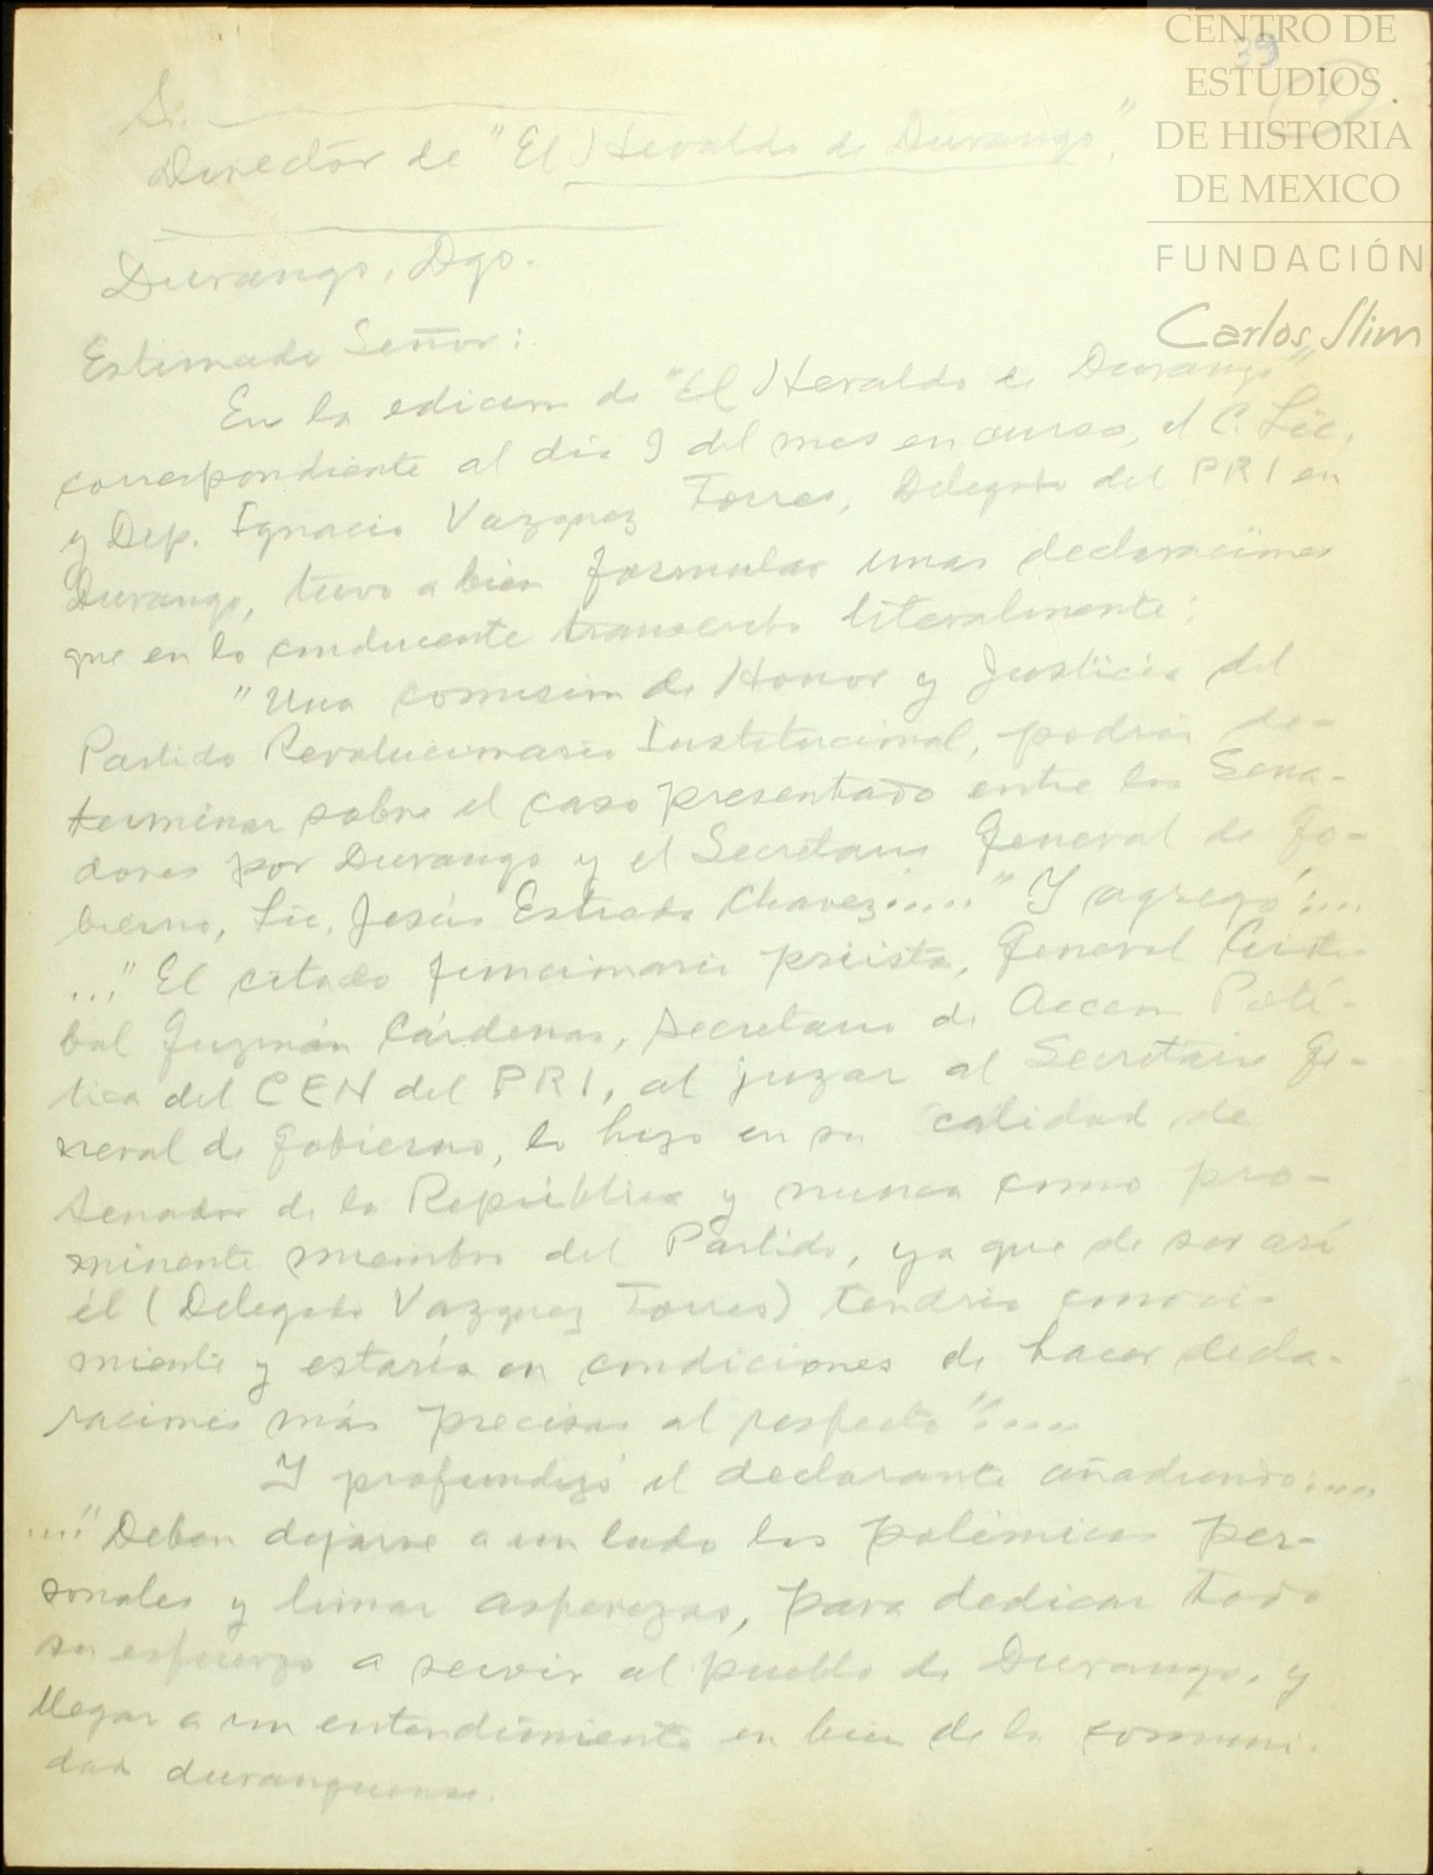 CENTRO DE
ESTUDIOS
DE HISTORIA
DE MEXICO
FUNDACIÓN
Carlos Slim
39
(1).
Sr.
Director de "El Heraldo de Durango",
Durango, Dgo.
Estimado Señor:
En la edicion de "El Heraldo de Durango"
correspondiente al dia 9 del mes en curso, el C. Lic.
y Dip. Ignacio Vazquez Torres, Delegado del PRI en
Durango, tuvo a bien formular unas declaraciones
que en lo conducente transcribo literalmente:
"Una comision de Honor y Justicia del
Partido Revolucionario Institucional, podria de-
terminar sobre el caso presentado entre los Sena-
dores por Durango y el Secretario General de Go-
bierno, Lic. Jesús Estrada Chavez....." Y agregó:...
..."El citado funcionario priista, General Cristo-
bal Guzmán Cárdenas, Secretario de Accion Polí-
tica del CEN del PRI, al juzgar al Secretario Ge-
neral de Gobierno, lo hizo en su calidad de
Senador de la República y nunca como pro-
minente miembro del Partido, ya que de ser así
él (Delegado Vazquez Torres) tendria conoci-
miento y estaría en condiciones de hacer decla-
raciones más precisas al respecto"....
Y profundizó el declarante añadiendo:...
..."Deben dejarse a un lado las polémicas per-
sonales y limar asperezas, para dedicar todo
su esfuerzo a servir al pueblo de Durango, y
llegar a un entendimiento en bien de la comuni-
dad duranguense.